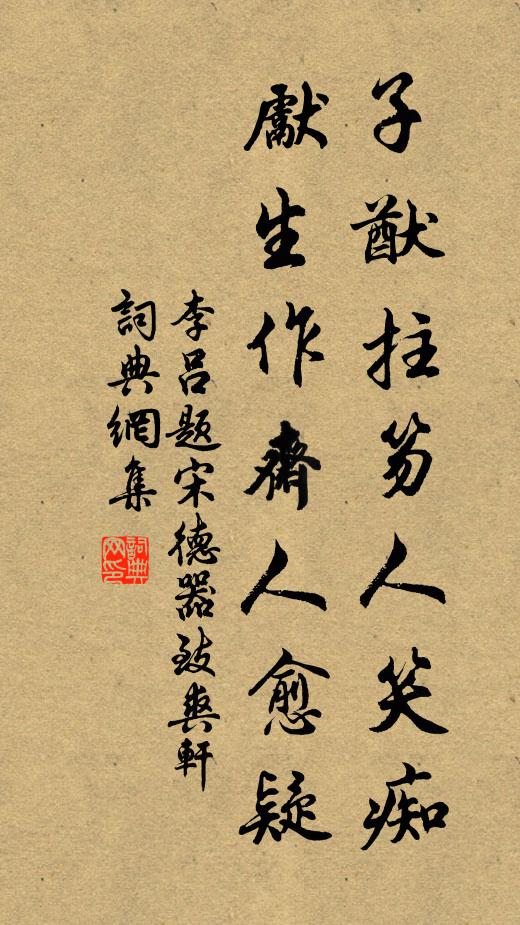 子猷拄笏人笑痴
獻生作齋人愈疑
李吕题宋德器致爽軒
詞典網集
詞典网印